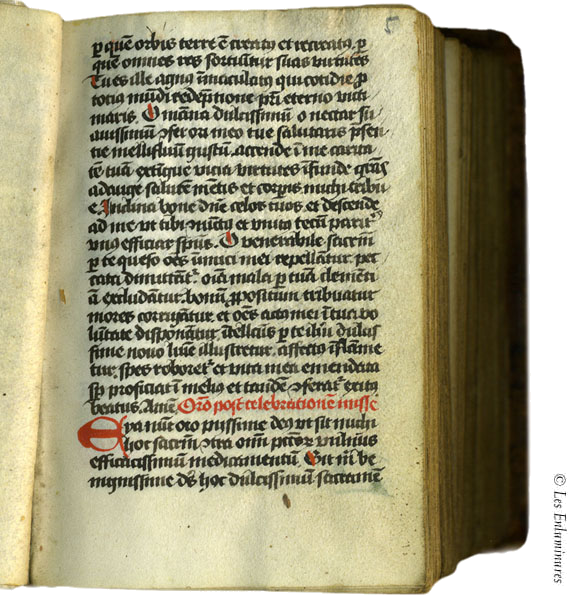 5
ꝑ quē orbis terre ē creatꝰ et recreatꝰ. ꝑ
quē omnes res sortiūtur suas virtutes
Tu es ille agnus īmaculatꝰ qui cotidie ꝓ
totiꝰ mūdi redēptione pr̄i eterno victi
maris. O māna dulcissimū o nectar su
auissimū ꝯfer ori meo tue salutaris p̄sen
tie mellifluū gustū. accende ī me carita
tē tuā extīque vicia virtutes īfunde gr̄as
adauge salutē mētis et corꝑis michi tribu
e. Inclina bone dn̄e celos tuos et descende
ad me vt tibi iūctꝰ et vnitꝰ tecū parit̾
vnus efficiar spūs. O venerabile sacr̄m
ꝑ te queso oēs īimici mei repellātur. pec
cata dimittāt̾. oīa mala ꝑ tuā clementi
ā excludātur. bonū ꝓpositum tribuatur
mores corrigātur. et oēs actꝰ mei ī tua vo
lūtate disponātur. ītellectꝰ ꝑ te ihū dulcis
sime nouo lumīe illustretur. affectꝰ īflāme
tur. spes roboret̾ et vita mea emendata
sꝑ proficiat ī meliꝰ et tandē ꝯferat̾ exitꝰ
beatus. Amē Orō post celebrationē misse
Eya nūc oro piissime deꝰ vt sit michi
hoc sacr̄m ꝯtra om̄ī pctōꝝ vulnius
efficacissimū medicamentū. Sit m̄ be
nignissime ds̄ hoc dulcissimū sacramē
© Les Enluminures